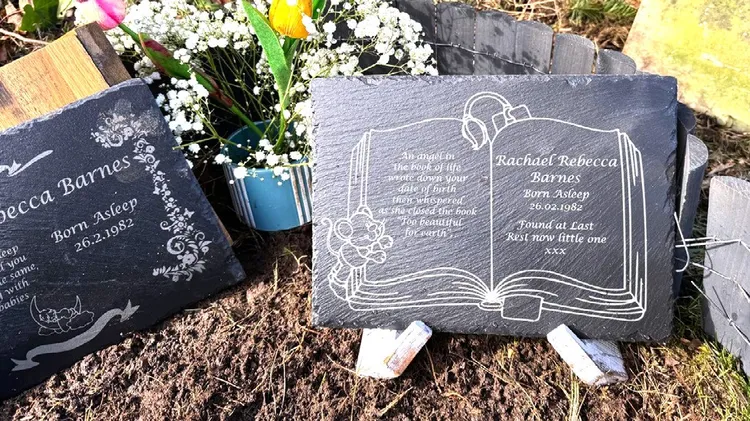 becca Barnes
Born Asleep
26.2.1982
you
same,
with
babies
An angel in
the book of life
wrote down your
date of birth
then whispered
as she closed the book
"Too beautiful
for earth".
Rachael Rebecca
Barnes
Born Asleep
26.02.1982
Found at Last
Rest now little one
xxx